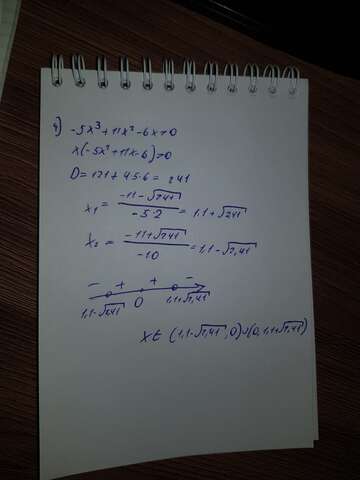 g) -5x³+11x²-6x>0
x(-5x²+11x-6)>0
D=121+4·5·6=241
x₁ = (-11-√241)/(-5·2) = 1,1+√241
x₂ = (-11+√241)/(-10) = 1,1-√2,41
- + + -
1,1-√2,41 0 1,1+√2,41
x∈(1,1-√2,41,0)∪(0,1,1+√2,41)